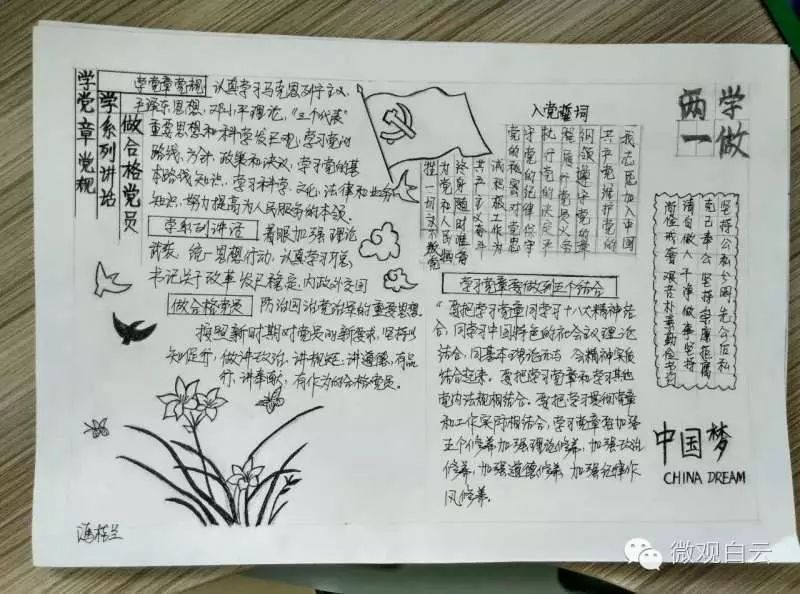 学党章党规
学系列讲话
做合格党员
学党章党规 认真学习马克思列宁主义、
毛泽东思想、邓小平理论、"三个代表"
重要思想和科学发展观,学习党的
路线、方针、政策和决议,学习党的基
本路线知识,学习科学、文化、法律和业务
知识,努力提高为人民服务的本领。
学系列讲话 着眼加强理论
武装、统一思想行动,认真学习习总
书记关于改革发展稳定、内政外交国
防治国治党治军的重要思想.
做合格党员
按照新时期对党员的新要求,坚持以
知促行,做讲政治、讲规矩、讲道德、有品
行、讲奉献、有作为的合格党员。
入党誓词
我志愿加入中国
共产党拥护党的
纲领遵守党的章
程履行党员义务
执行党的决定严
守党的纪律保守
党的秘密对党忠
诚积极工作为
共产主义奋斗
终身随时准备
为党和人民牺
牲一切永不叛党
两学
一做
学习党章要做到三个结合
"要把学习党章同学习十八大精神结
合,同学习中国特色的社会主义理论
结合,同基本理论和 会精神实质
结合起来。要把学习党章和学习其他
党内法规相结合。要把学习贯彻党章
和工作实际相结合,学习党章要加强
五个修养,加强理论修养,加强政治
修养,加强道德修养,加强纪律作
风修养。
坚持公私分明先公后私
克己奉公坚持崇廉拒腐
清白做人干净做事坚持
尚俭戒奢艰苦朴素勤俭节约
中国梦
CHINA DREAM
微观白云